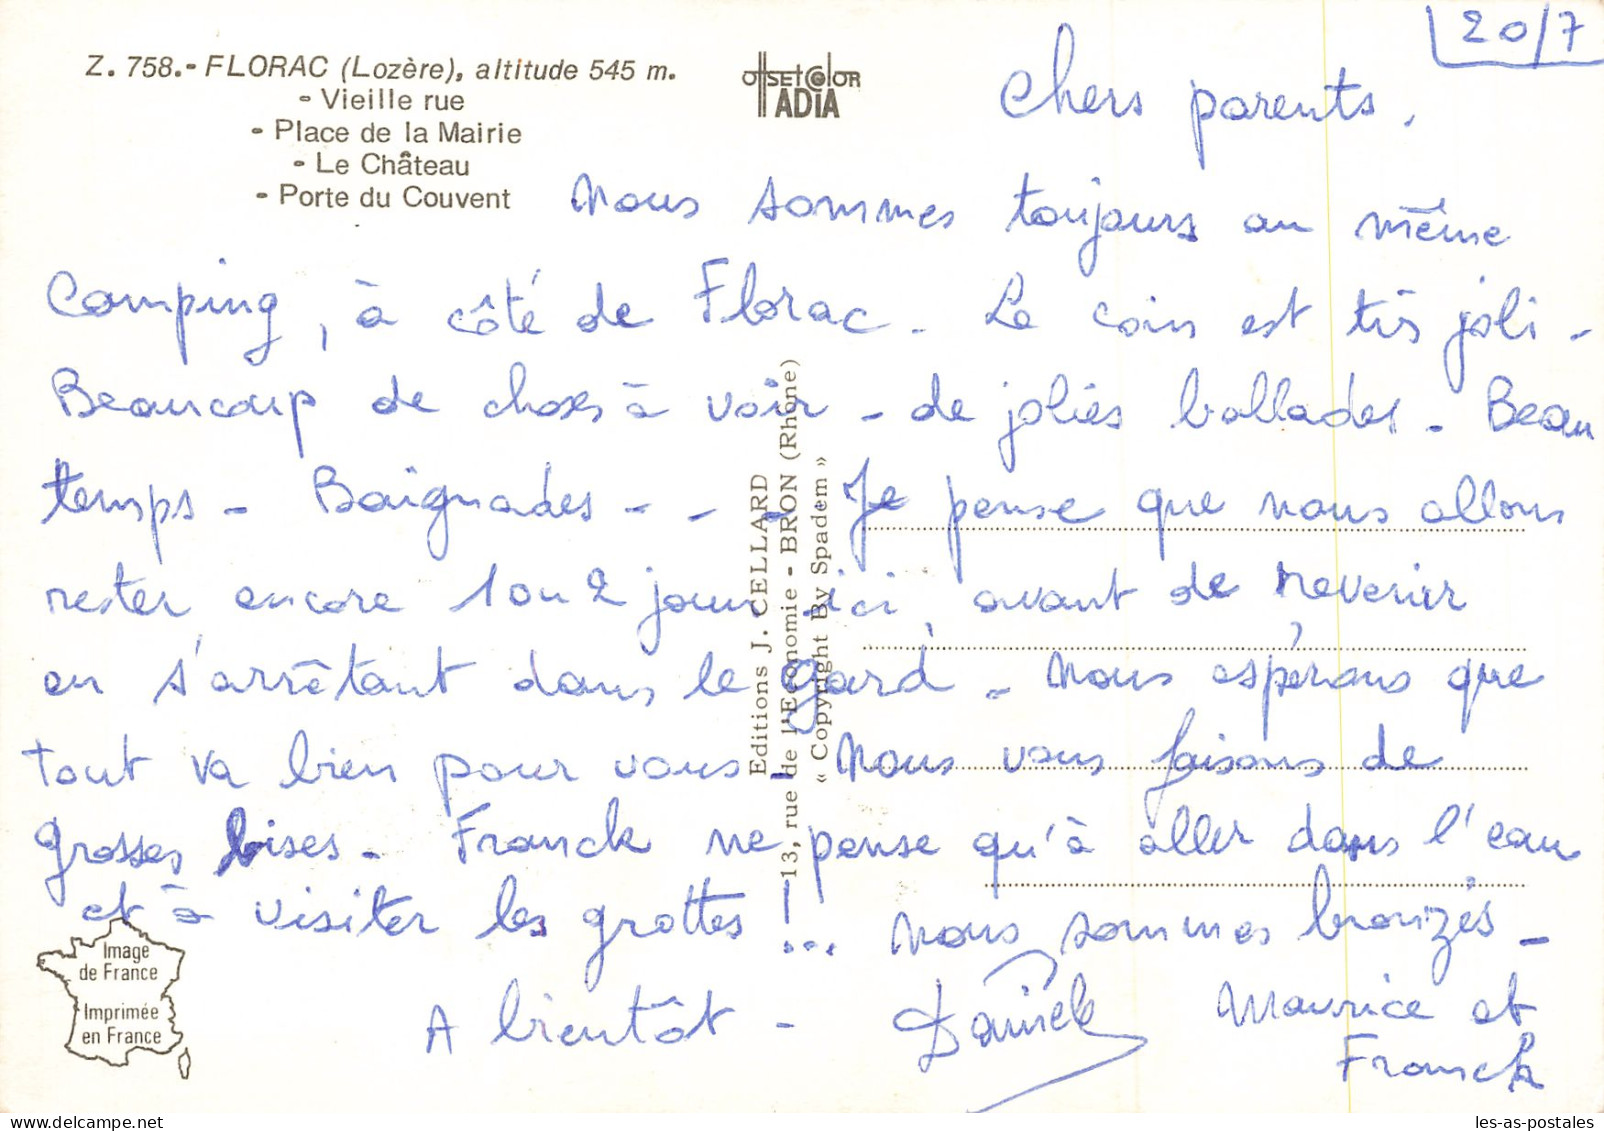 20/7
Z. 758.- FLORAC (Lozère), altitude 545 m.
- Vieille rue
- Place de la Mairie
- Le Château
- Porte du Couvent
OffSEt COlOR
ADIA
Chers parents.
Nous sommes toujours au même
Camping, à côté de Florac. Le coin est très joli -
Beaucoup de choses à voir - de jolies ballades - Beau
temps - Baignades - - - Je pense que nous allons
rester encore 1 ou 2 jours ici, avant de revenir
en s'arrêtant dans le Gard - Nous espérons que
tout va bien pour vous! Nous vous faisons de
grosses bises - Franck ne pense qu'à aller dans l'eau
et à visiter les grottes !... Nous sommes bronzés -
A bientôt - Danièle Maurice et
Franck
Editions J. CELLARD
13, rue de l'Economie - BRON (Rhône)
« Copyright By Spadem »
Image
de France
Imprimée
en France
les-as-postales